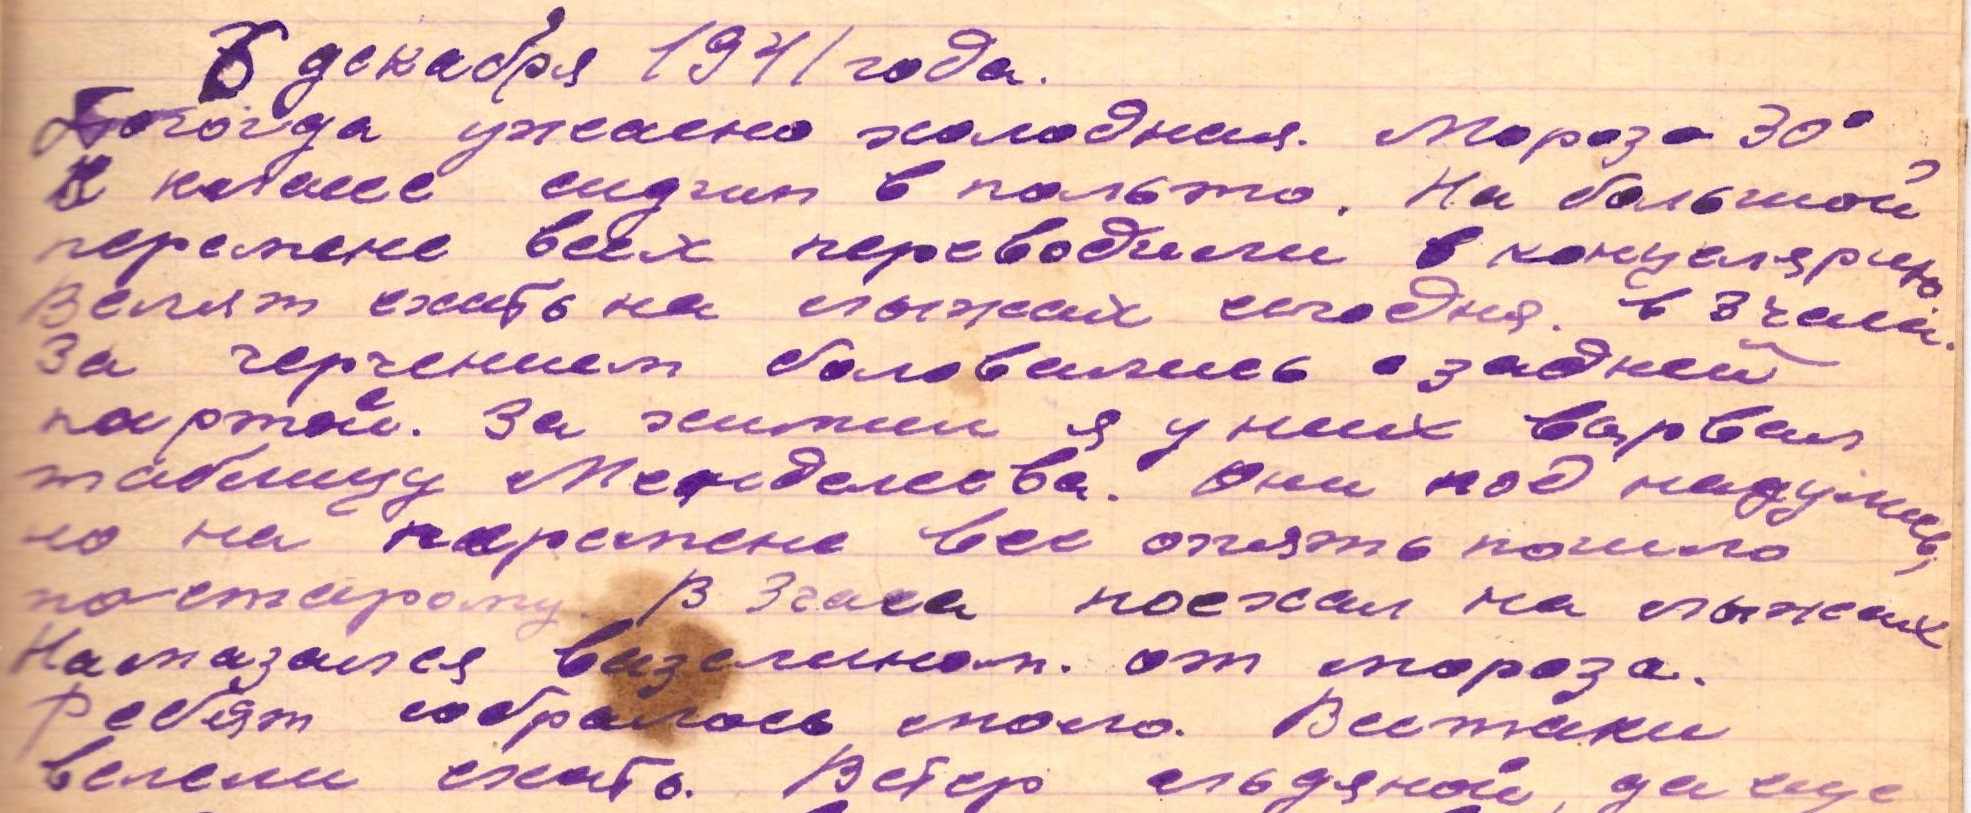 6 декабря 1941 года.
Погода ужасно холодная. Мороз 30°
В классе сидим в польто. На большой
перемене всех переводили в концелярию
Велят ехать на лыжах сегодня. в 3 часа.
За черчением баловались с задней
партой. За химии я у них
таблицу Менделеева. Они под надулись,
но на перемене все опять пошло
по старому. В 3 часа поехал на лыжах
Намазался визелином. от мороза.
Ребят собралось мало. Всетаки
велели ехать. Ветер льдяной, да еще